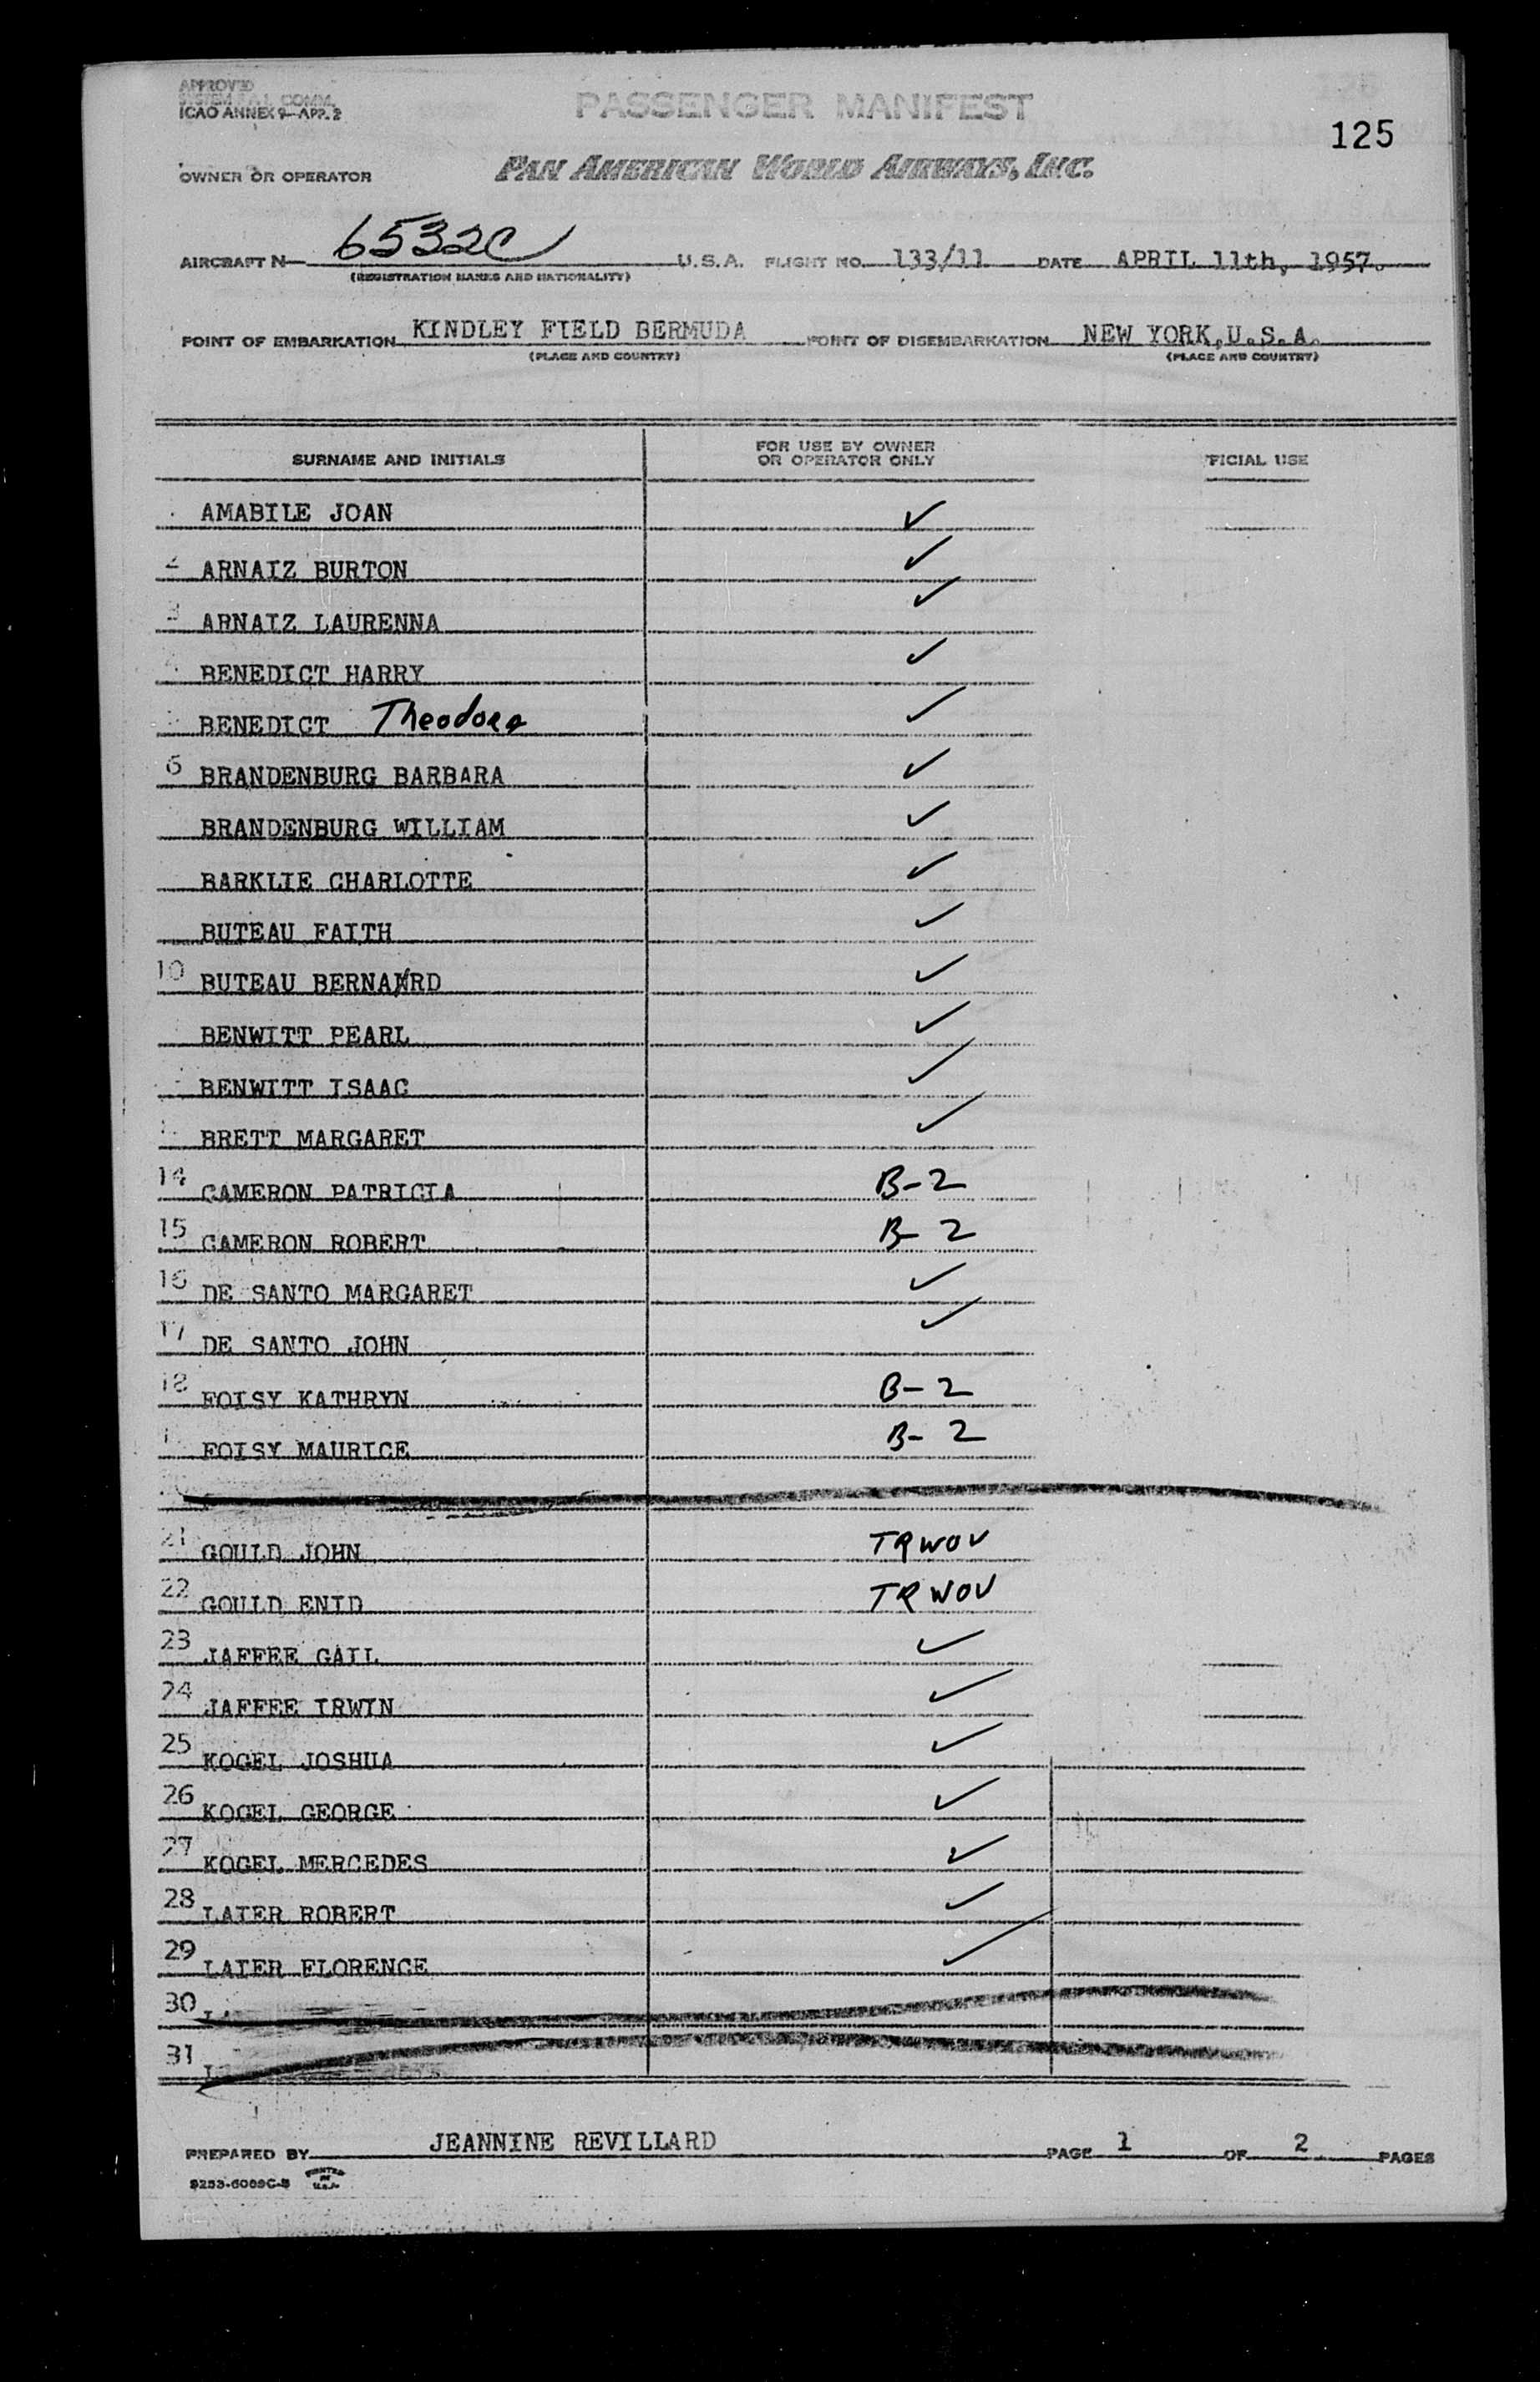 APPROVED
SYSTEM FAL COMM.
ICAO ANNEX 9—APP. 2
PASSENGER MANIFEST
125
OWNER OR OPERATOR
PAN AMERICAN WORLD AIRWAYS, INC.
AIRCRAFT N— 6532C U.S.A. FLIGHT NO. 133/11 DATE APRIL 11th, 1957.
(REGISTRATION MARKS AND NATIONALITY)
POINT OF EMBARKATION KINDLEY FIELD BERMUDA POINT OF DISEMBARKATION NEW YORK,U.S.A.
(PLACE AND COUNTRY) (PLACE AND COUNTRY)
SURNAME AND INITIALS FOR USE BY OWNER OR OPERATOR ONLY FICIAL USE
AMABILE JOAN ✓
2 ARNAIZ BURTON ✓
3 ARNAIZ LAURENNA ✓
BENEDICT HARRY ✓
BENEDICT Theodora ✓
6 BRANDENBURG BARBARA ✓
BRANDENBURG WILLIAM ✓
BARKLIE CHARLOTTE ✓
BUTEAU FAITH ✓
10 BUTEAU BERNARD ✓
BENWITT PEARL ✓
BENWITT ISAAC ✓
BRETT MARGARET ✓
14 CAMERON PATRICIA B-2
15 CAMERON ROBERT B-2
16 DE SANTO MARGARET ✓
17 DE SANTO JOHN ✓
18 FOISY KATHRYN B-2
1 FOISY MAURICE B-2
21 GOULD JOHN TRWOV
22 GOULD ENID TRWOV
23 JAFFEE GAIL ✓
24 JAFFEE IRWIN ✓
25 KOGEL JOSHUA ✓
26 KOGEL GEORGE ✓
27 KOGEL MERCEDES ✓
28 LATER ROBERT ✓
29 LATER FLORENCE ✓
30
31
PREPARED BY JEANNINE REVILLARD PAGE 1 OF 2 PAGES
9253-6089C-5 PRINTED IN U.S.A.